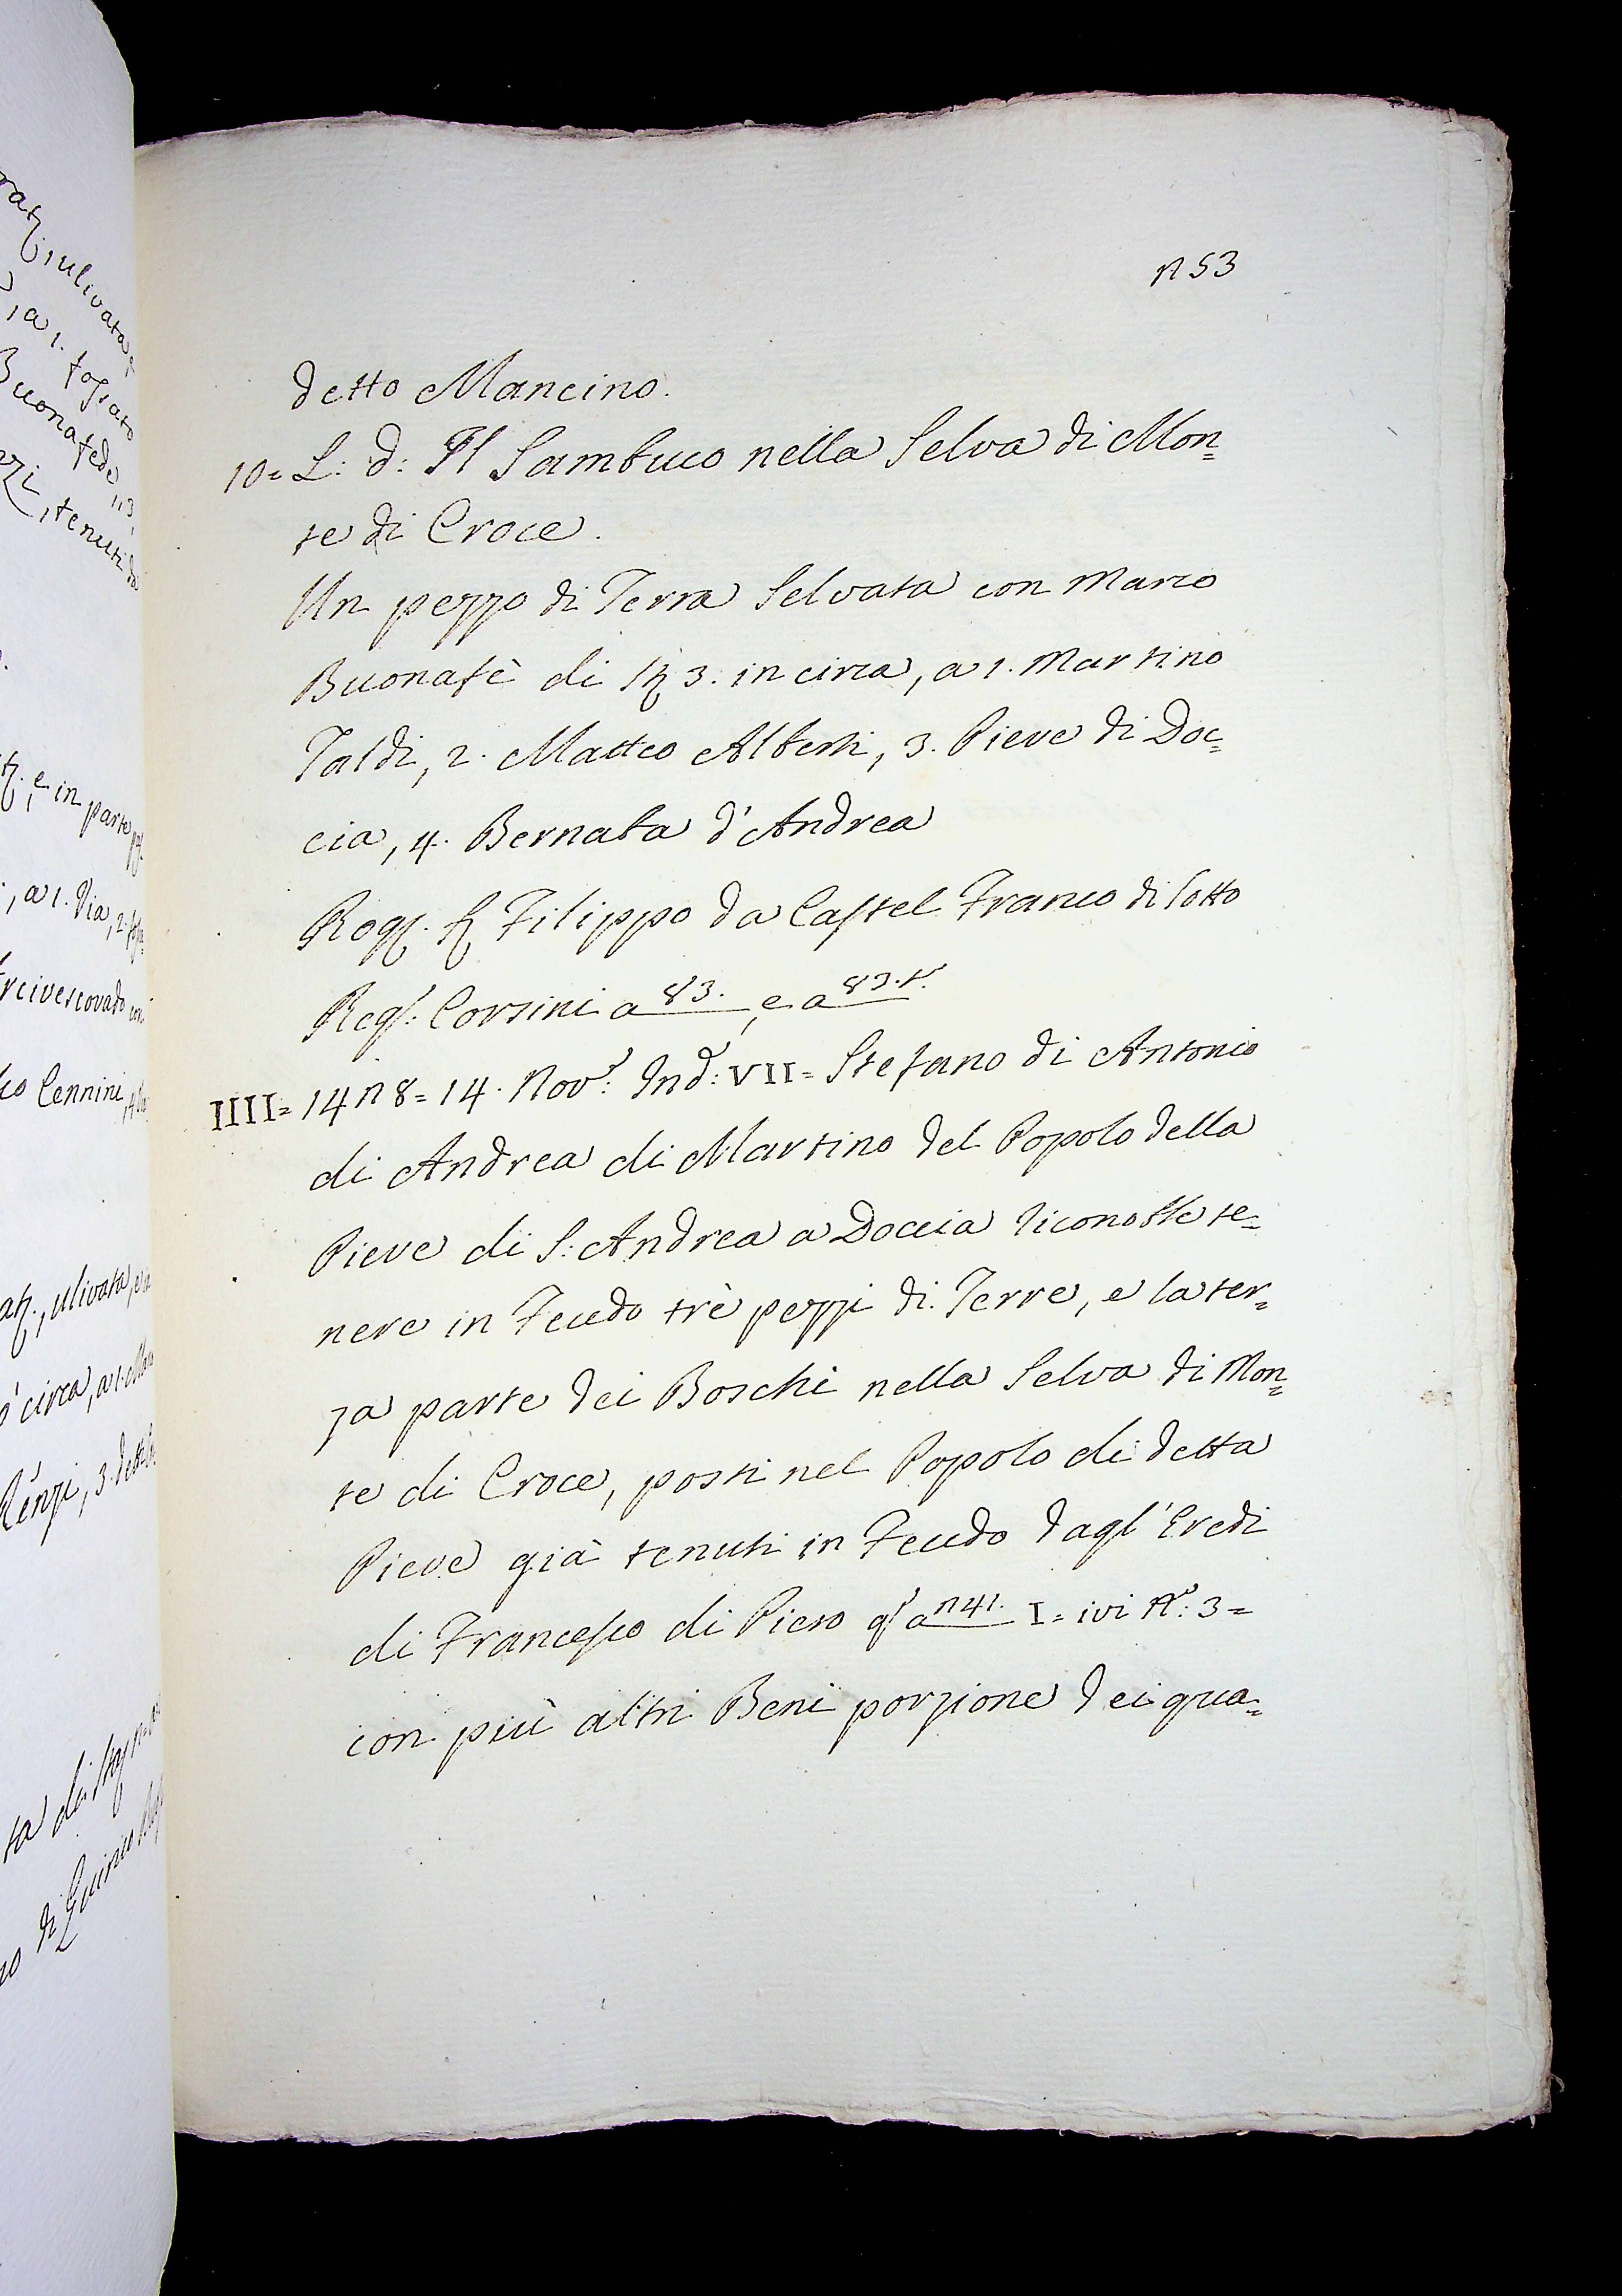 n53
detto Mancino.
10= L: d: Il Sambuco nella Selva di Mon=
te di Croce.
Un pezzo di Terra Selvata con Marco
Buonafè di 3. in circa, a 1. Martino
Taldi, 2. Matteo Alberti, 3. Pieve di Doc=
cia, 4. Bernaba d'Andrea
Rog. Filippo da Castel Franco di Sotto
Reg: Corsini a 83. e a 83.t
IIII= 14n8= 14. Nov: Ind: VII= Stefano di Antonio
di Andrea di Martino del Popolo della
Pieve di S: Andrea a Doccia riconobbe te=
nere in Feudo trè pezzi di Terre, e la ter=
za parte dei Boschi nella Selva di Mon=
te di Croce, posti nel Popolo di detta
Pieve già tenuti in Feudo dagl'Eredi
di Francesco di Piero a n41. I= ivi N: 3=
con più altri Beni porzione dei qua=
ulivata
, a 1. fossato
Buonafede
, tenuti da
. e in parte
, a 1. Via, 2.
rcivescovado
co Cennini
, ulivata, e
circa, a 1.
Renzi, 3. detto
ta di
di Quirico